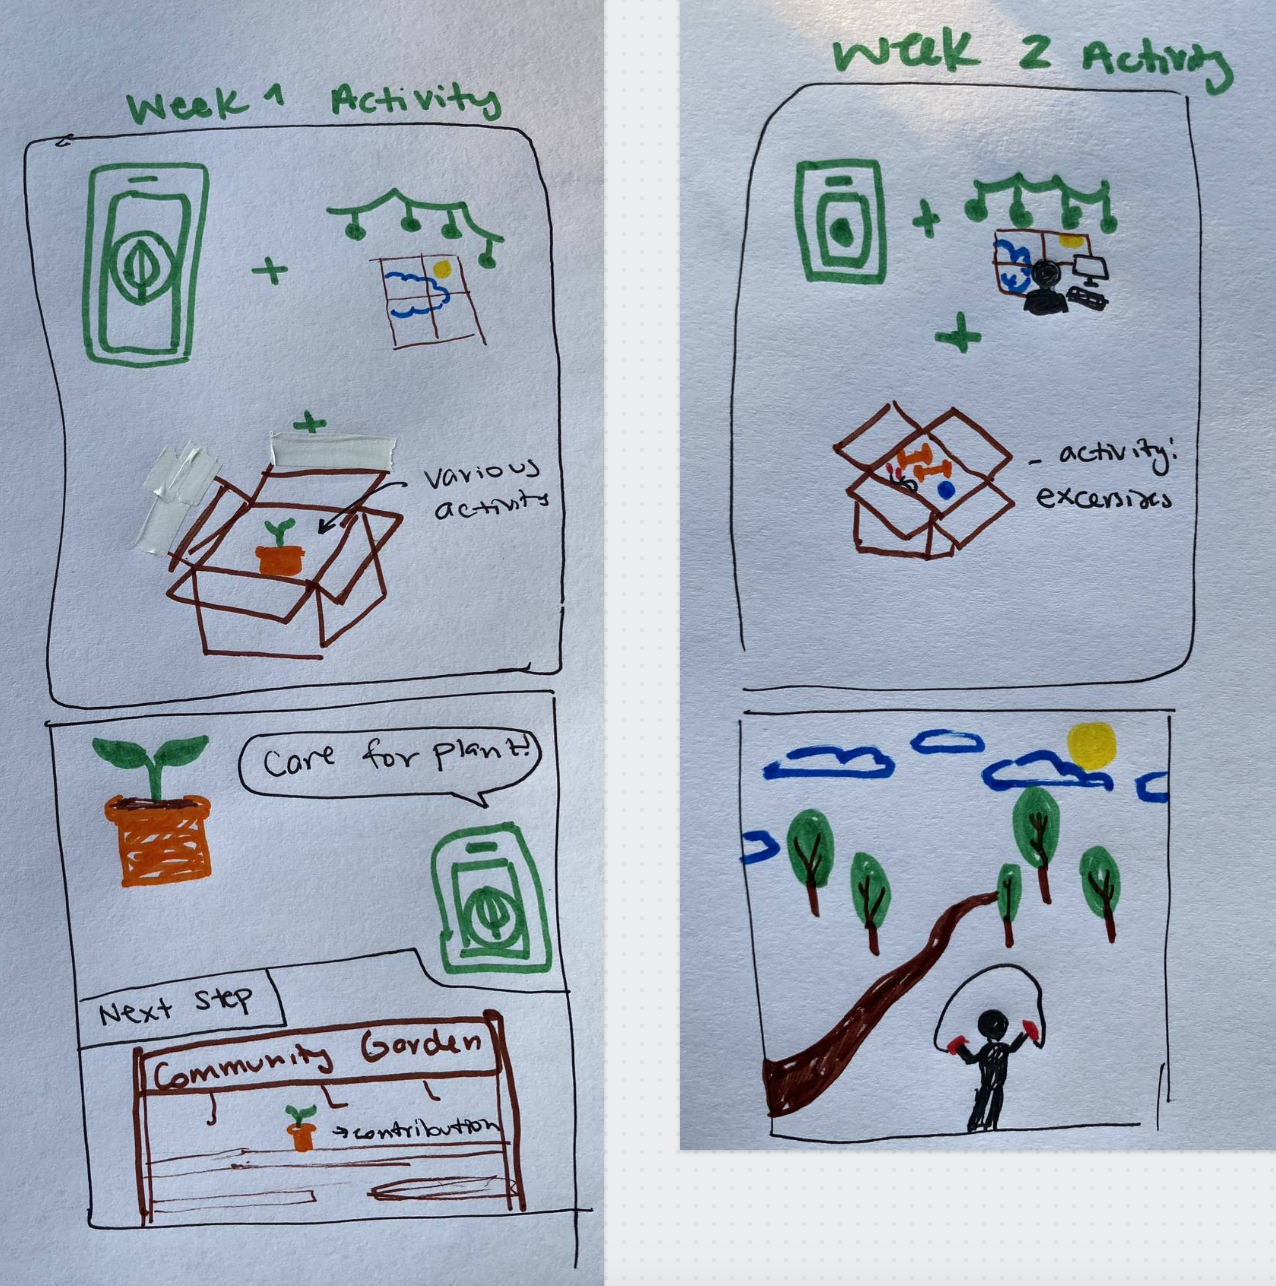 Week 1 Activity
various
activity
Care for plant!
Next Step
Community Garden
→contribution
Week 2 Activity
- activity:
excersizes